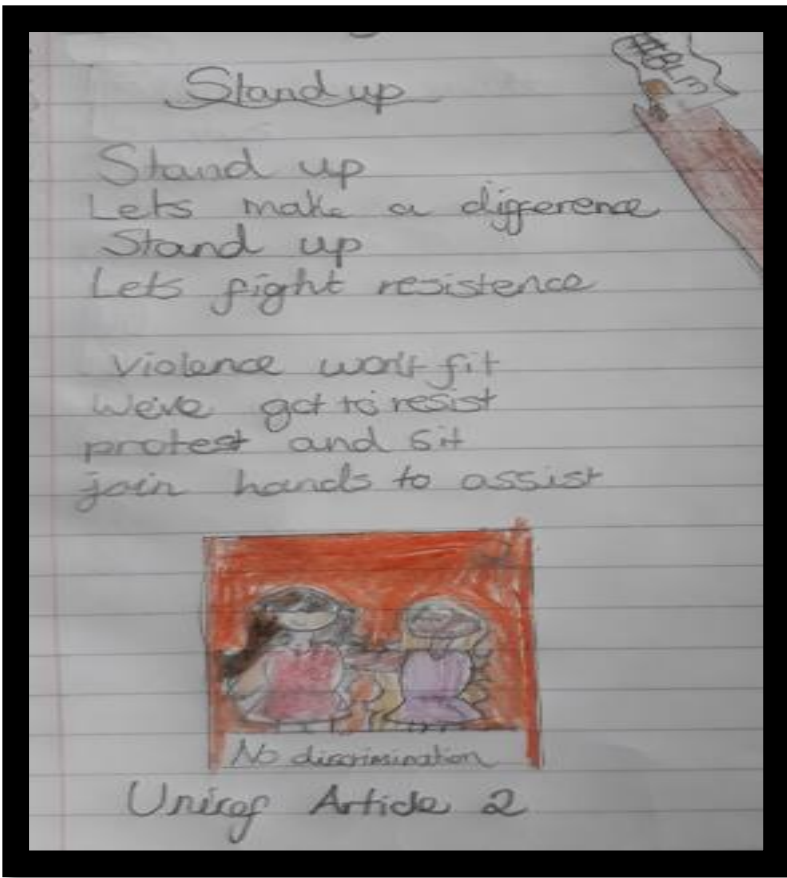 Stand up
#BLM
Stand up
Lets make a difference
Stand up
Lets fight resistence
Violence won't fit
We've got to resist
protest and sit
join hands to assist
No discrimination
Unicef Article 2